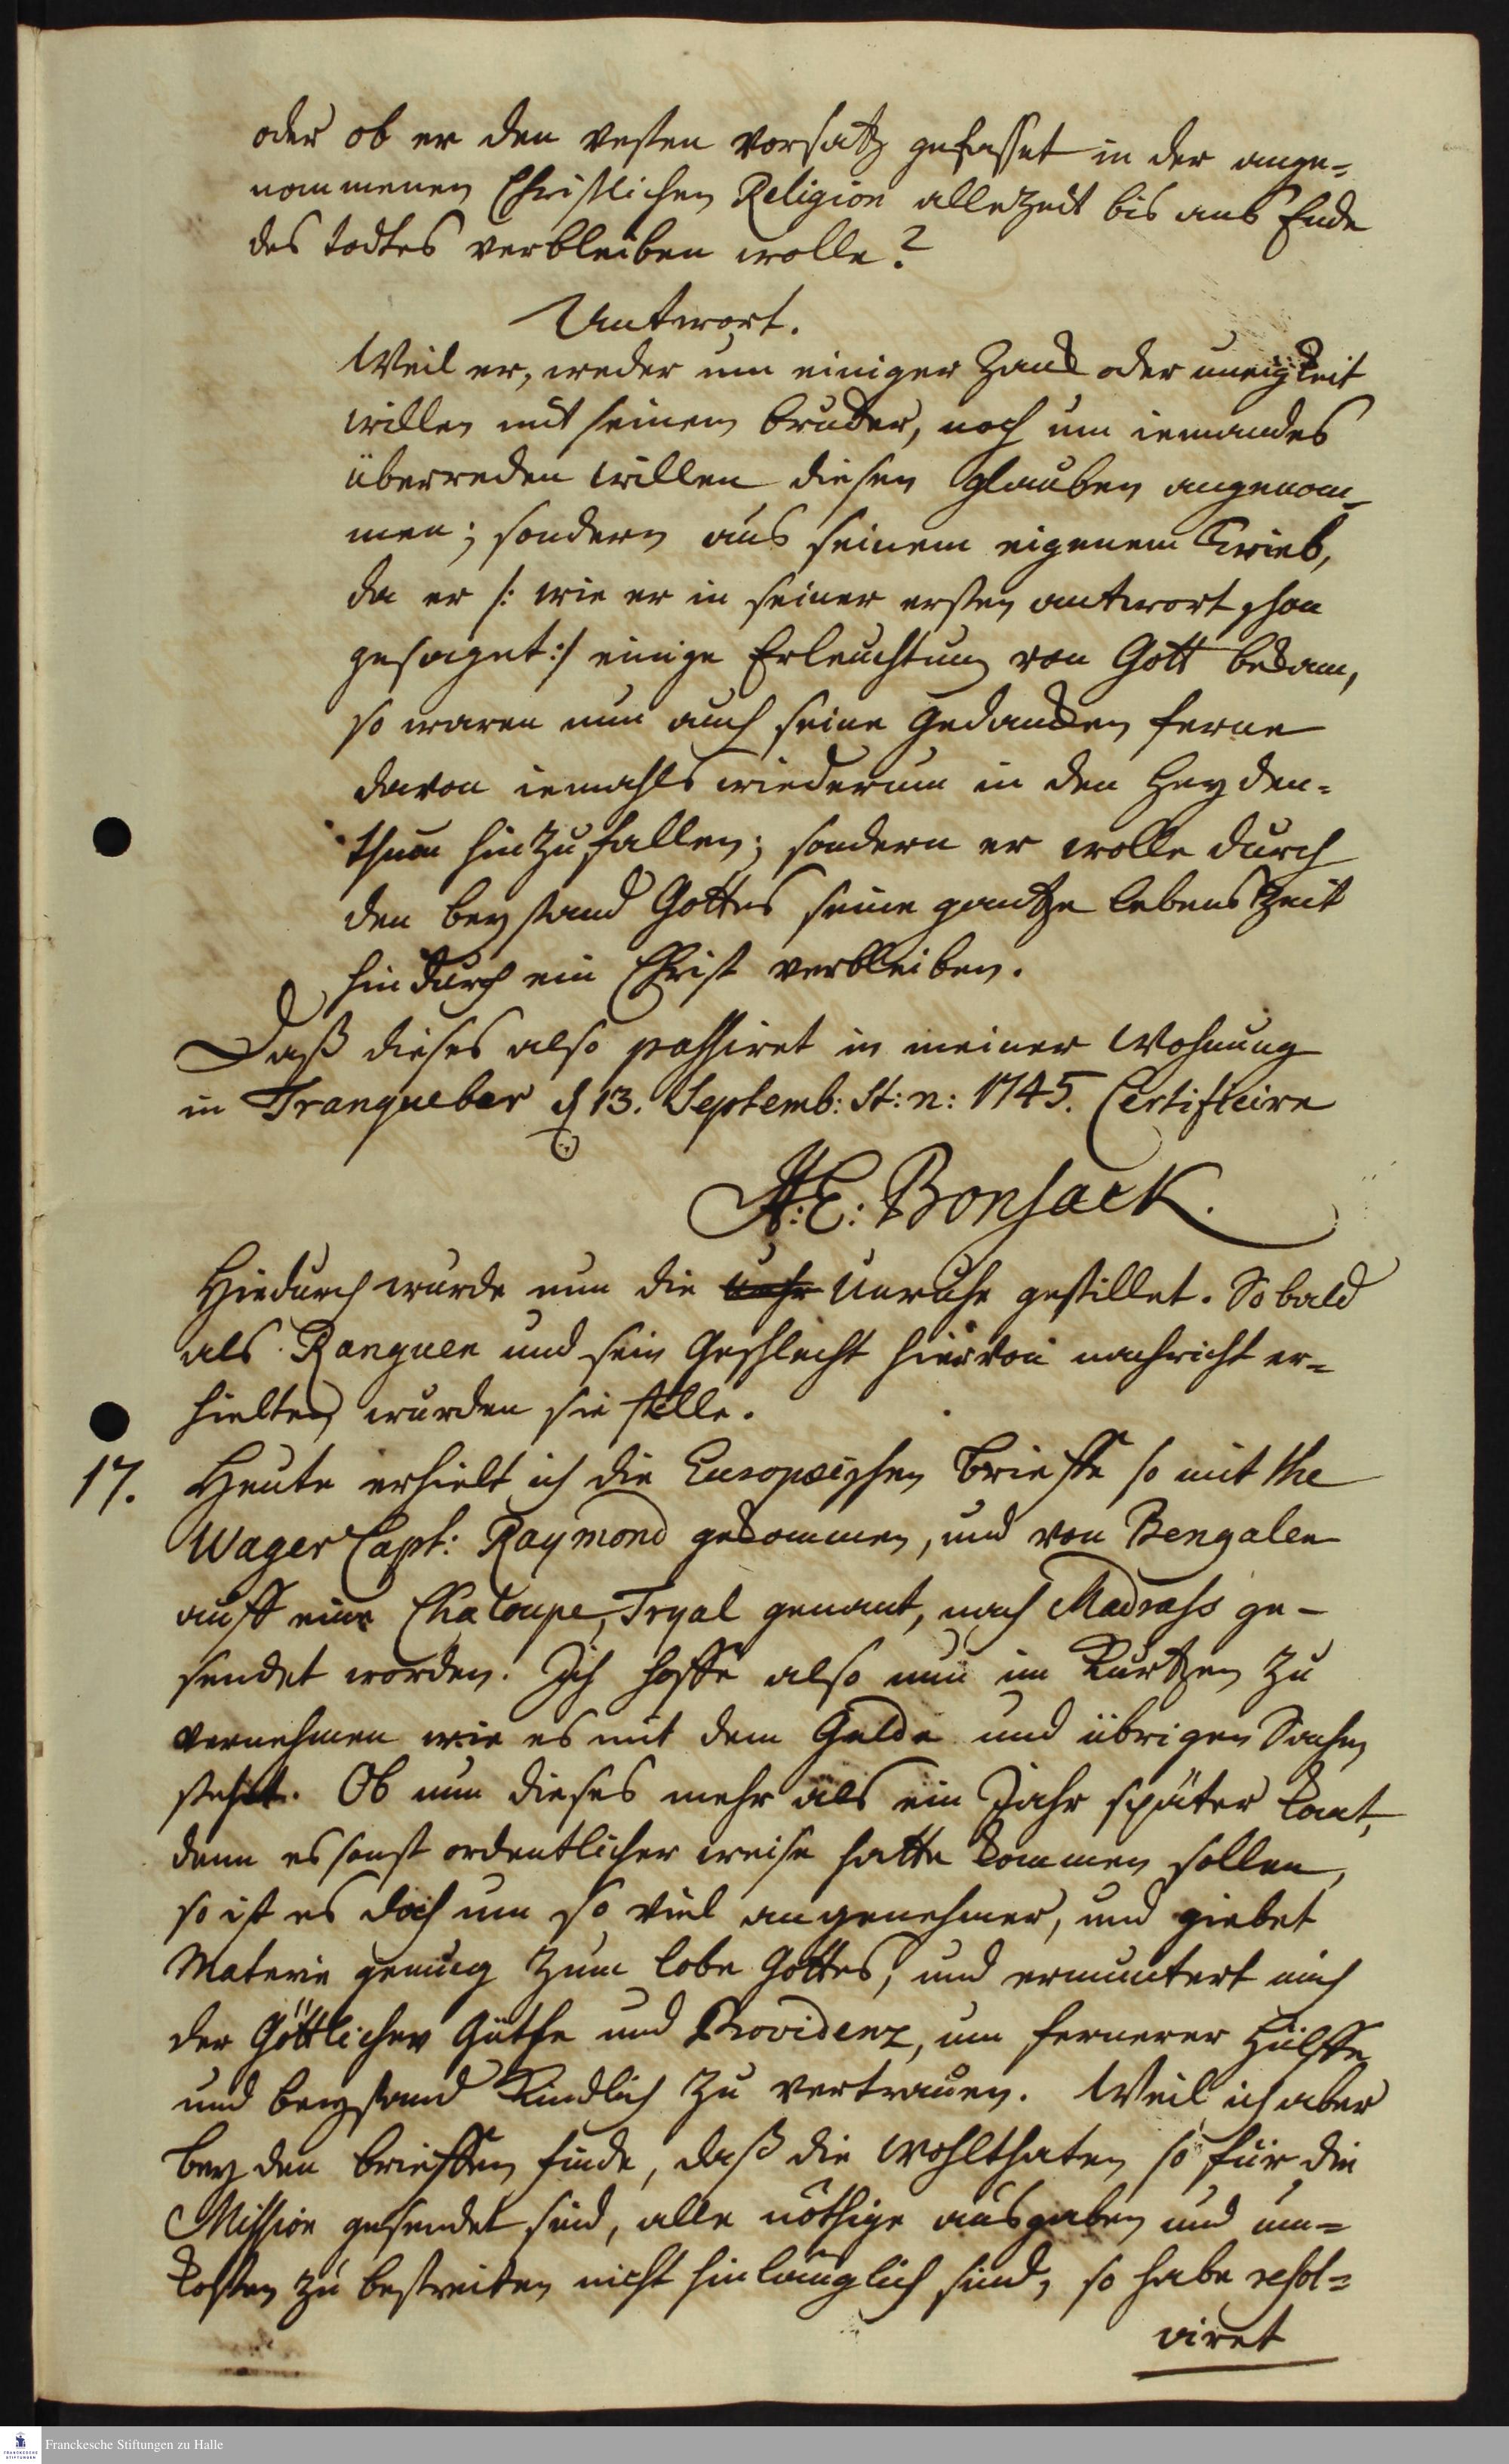 oder ob er den vesten Vorsatz gefasset in der ange-
nommenen Christlichen Religion allezeit bis ans Ende
des todtes verbleiben wolle?
Antwort.
Weil er, weder um einiger Zank oder uneigkeit
willen mit seinem bruder, noch um iemandes
überreden willen diesen Glauben angenom-
men; sondern aus seinem eigenem Trieb,
da er /: wie er in seiner ersten antwort schon
gesaget :/ einige Erleuchtung von Gott bekam,
so waren nun auch seine Gedancken ferne
davon iemahls wiederum in den Heyden-
thum hinzufallen; sondern er wolle durch
den beystand Gottes seine gantze lebens Zeit
hindurch ein Christ verbleiben.
Daß dieses also passiret in meiner Wohnung
in Tranquebar d 13. Septemb: St: n: 1745. Certificire
A: E: Bonsack.
Hiedurch wurde nun die Unruhe gestillet. So bald
als Ranguen und sein Geschlecht hiervon nachricht er-
hielten, wurden sie stille.
17. Heute erhielt ich die Europæischen Brieffe so mit the
Wager Capt: Raymond gekommen, und von Bengalen
auff eine Chaloupe, Tryal genant, nach Madrass ge-
sendet worden. Ich hoffe also nun im Kurtzen zu
vernehmen wie es mit dem Gelde und übrigen Sachen
stehet. Ob nun dieses mehr als ein Jahr später komt,
denn es sonst ordentlicher weise hatte kommen sollen,
so ist es doch um so viel angenehmer, und giebet
Materie genung zum lobe Gottes, und ermuntert mich
der Göttlichen Güthe und Providenz, um fernerer Hülffe
und beystand Kindlich zu vertrauen. Weil ich aber
bey den brieffen finde, daß die Wohlthaten so für die
Mission gesendet sind, alle nöthige ausgaben und un-
kosten zu bestreiten nicht hinlänglich sind, so habe resol-
viret
Franckesche Stiftungen zu Halle